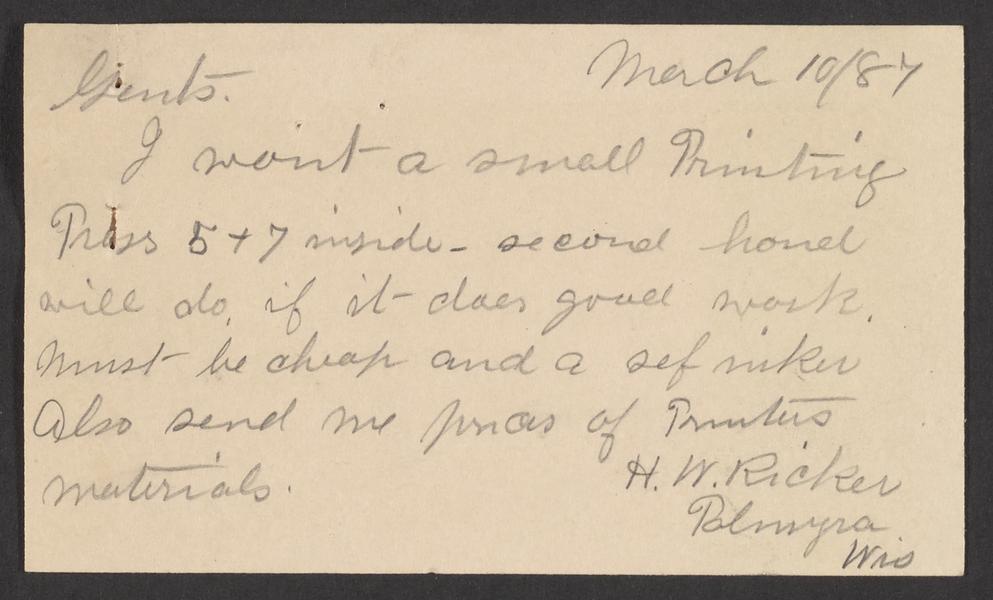 March 10/87
Gents.
I want a small Printing
Press 5+7 inside - second hand
will do, if it does good work.
Must be cheap and a sef inker
Also send me prices of Printers
materials.
H. W. Ricker
Palmyra
Wis